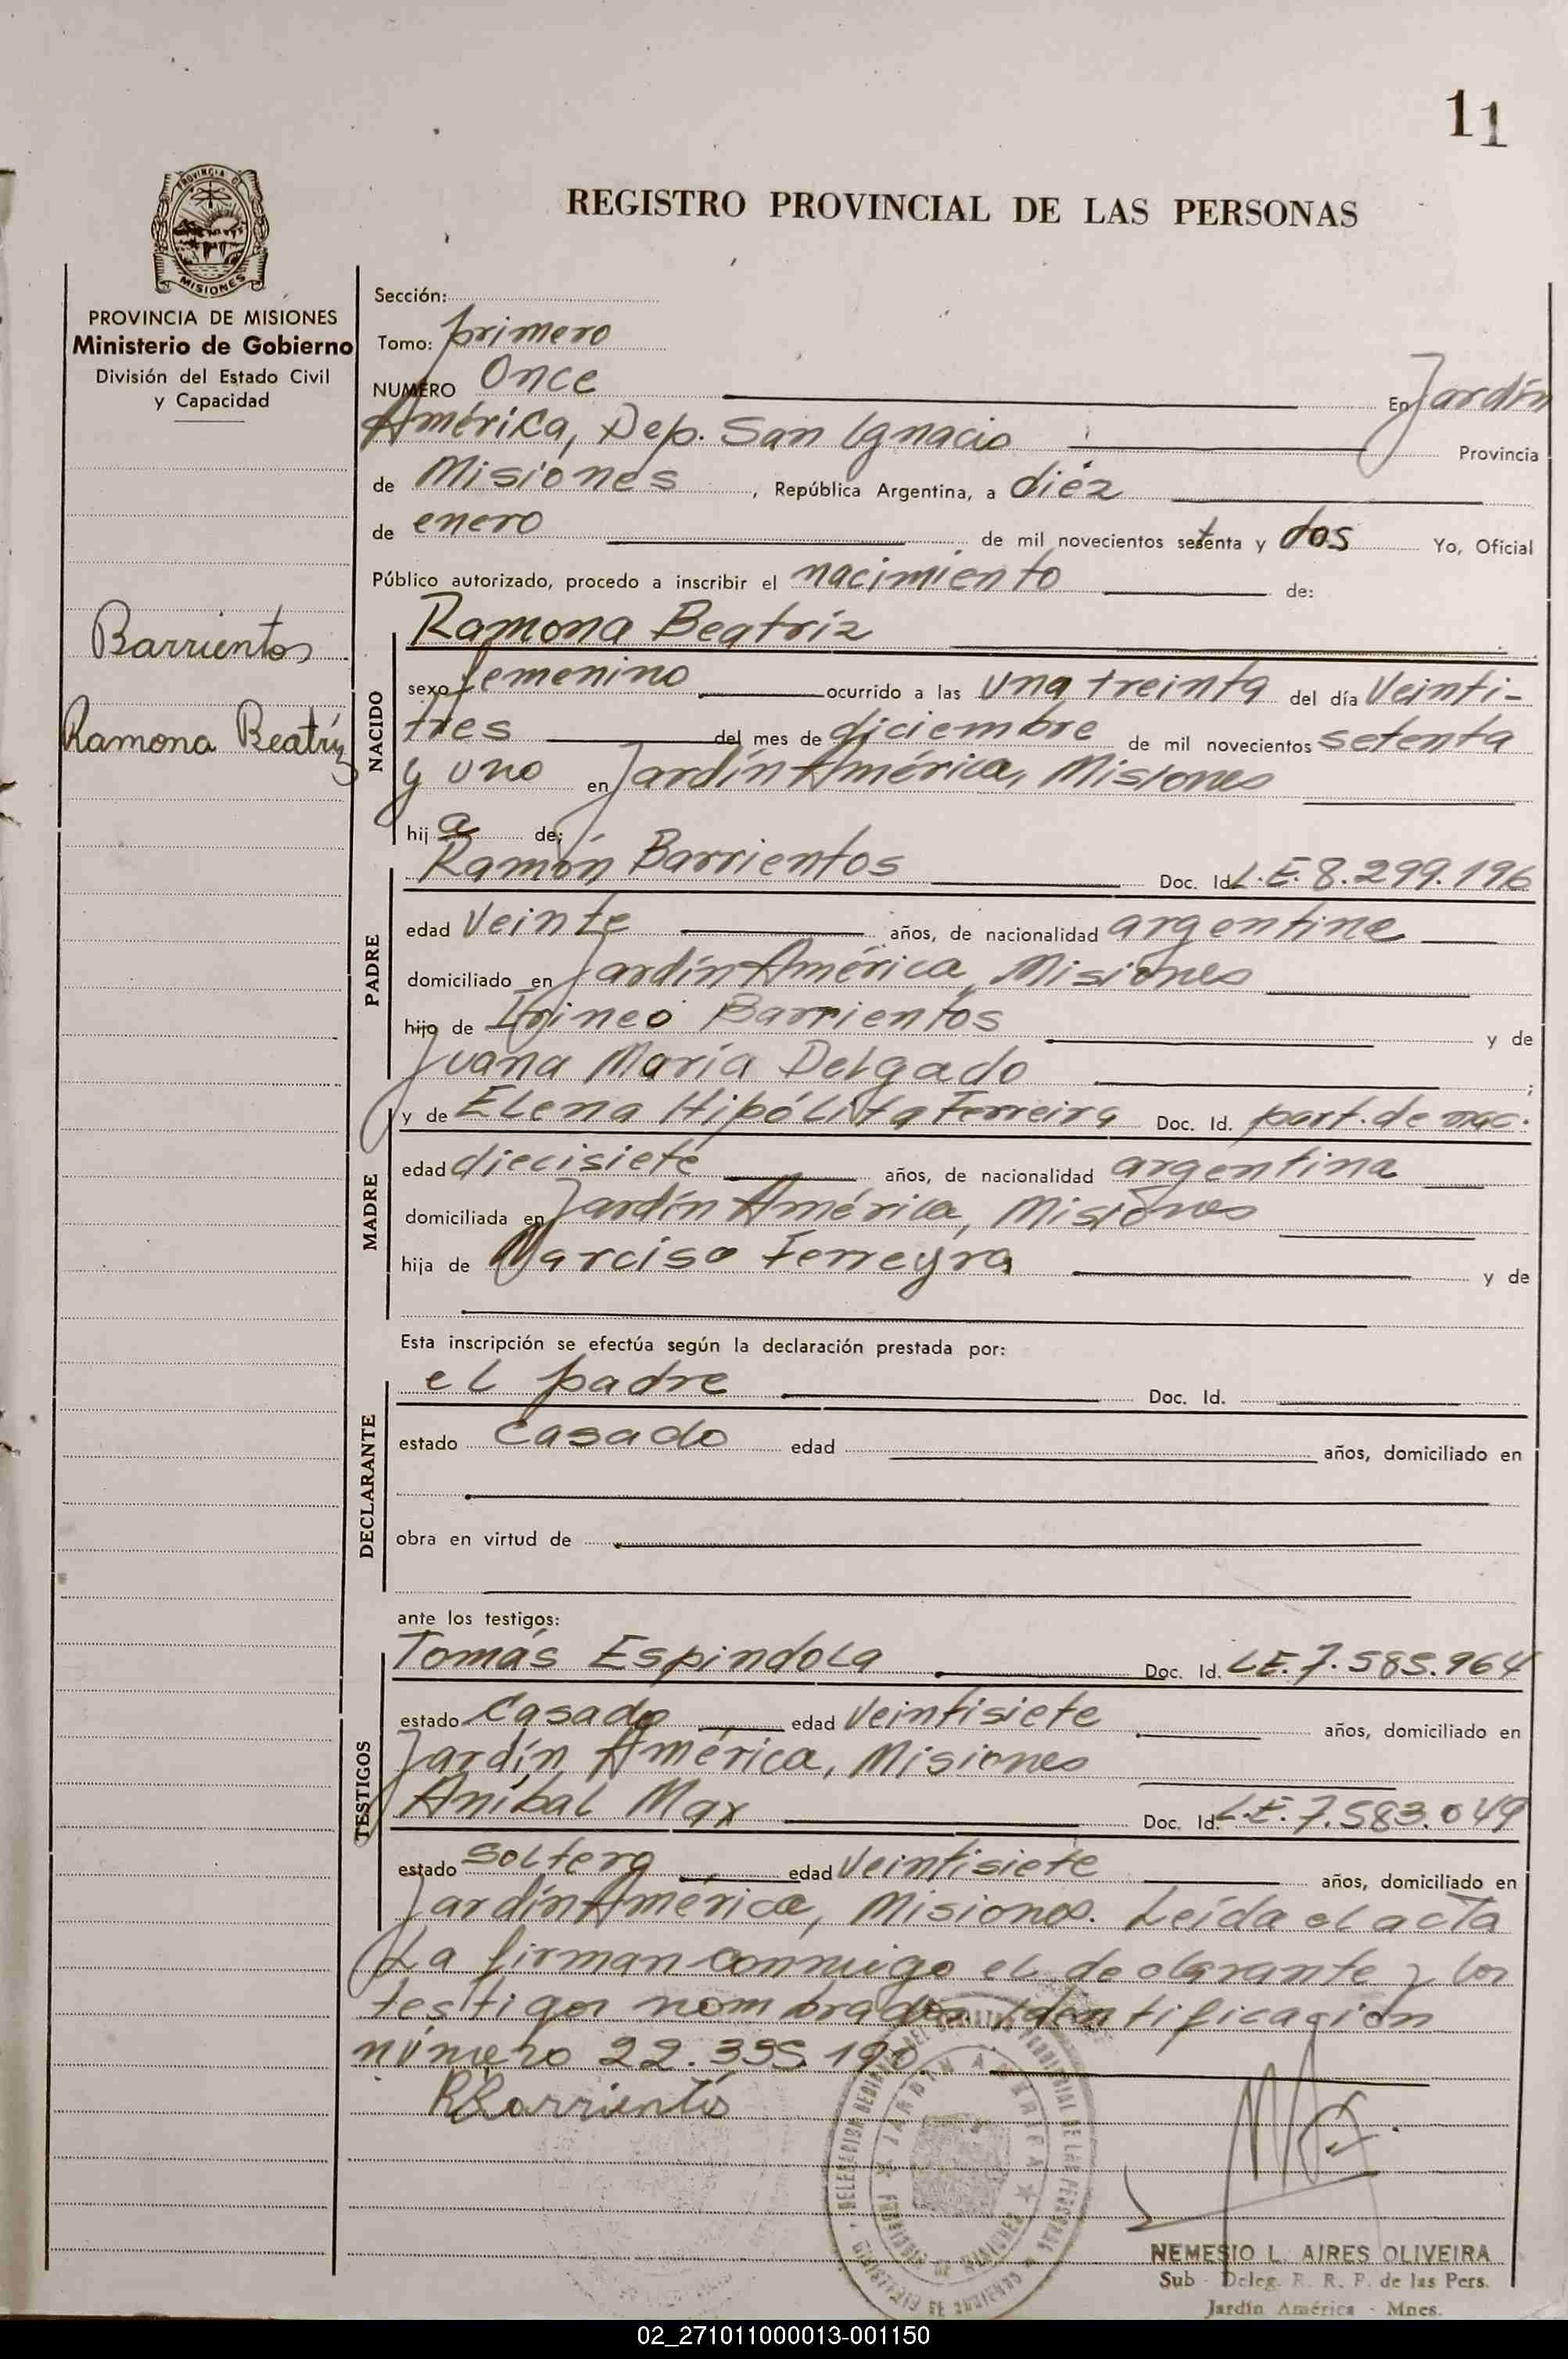 11
REGISTRO PROVINCIAL DE LAS PERSONAS
PROVINCIA DE MISIONES
PROVINCIA DE MISIONES
Ministerio de Gobierno
División del Estado Civil
y Capacidad
Barrientos
Ramona Beatriz
Sección:
Tomo: primero
NUMERO Once En Jardín
América, Dep. San Ignacio Provincia
de Misiones, República Argentina, a diez
de enero de mil novecientos setenta y dos Yo, Oficial
Público autorizado, procedo a inscribir el nacimiento de:
NACIDO
Ramona Beatriz
sexo femenino ocurrido a las una treinta del día veinti-
tres del mes de diciembre de mil novecientos setenta
y uno en Jardín América, Misiones
hija de:
PADRE
Ramón Barrientos Doc. Id. L.E. 8.299.196
edad veinte años, de nacionalidad argentina
domiciliado en Jardín América, Misiones
hijo de Irineo Barrientos y de
Juana María Delgado ;
MADRE
y de Elena Hipólita Ferreira Doc. Id. part. de nac.
edad diecisiete años, de nacionalidad argentina
domiciliada en Jardín América, Misiones
hija de Narciso Ferreyra y de
Esta inscripción se efectúa según la declaración prestada por:
DECLARANTE
el padre Doc. Id.
estado casado edad años, domiciliado en
obra en virtud de
ante los testigos:
TESTIGOS
Tomás Espindola Doc. Id. L.E. 7.585.964
estado casado edad veintisiete años, domiciliado en
Jardín América, Misiones
Aníbal Max Doc. Id. L.E. 7.583.049
estado soltero edad veintisiete años, domiciliado en
Jardín América, Misiones. Leída el acta
La firman conmigo el declarante y los
testigos nombrados. Identificación
número 22.335.190.
RBarrientos
JARDIN AMERICA
PROVINCIA DE MISIONES
NEMESIO L. AIRES OLIVEIRA
Sub - Deleg. R. R. P. de las Pers.
Jardín América - Mnes.
02_271011000013-001150